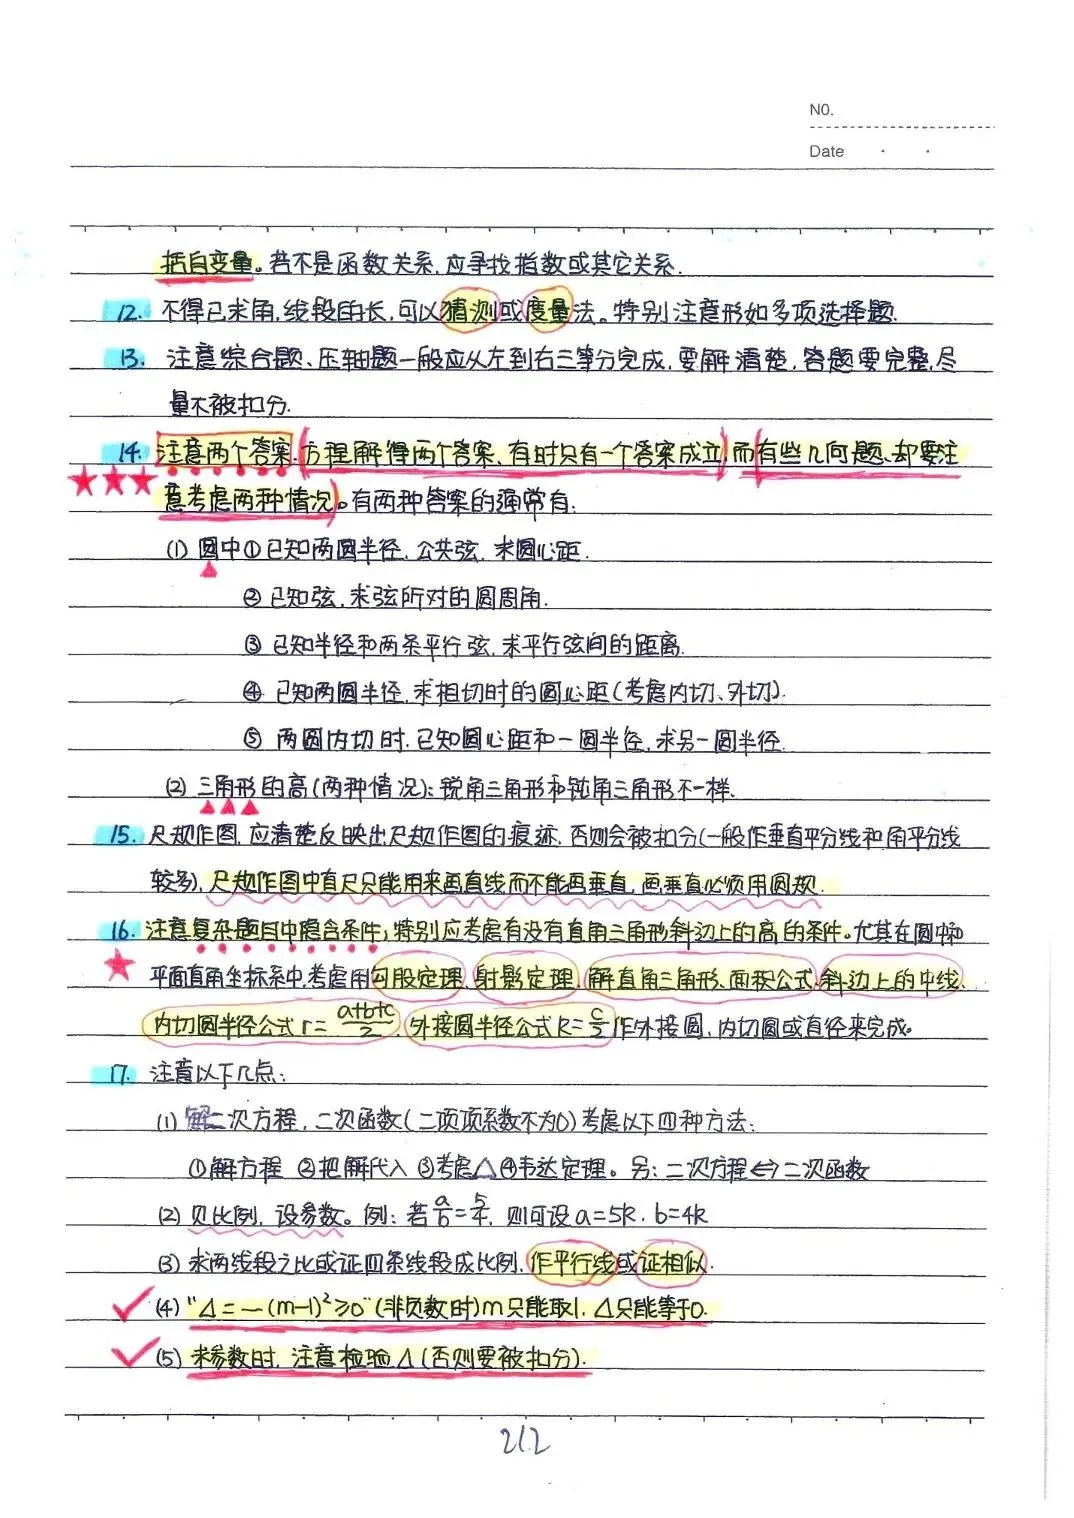 NO.
Date
括自变量。若不是函数关系,应寻找指数或其它关系.
12. 不得已求角,线段的长,可以猜测或度量法。特别注意形如多项选择题.
13. 注意综合题、压轴题一般应从左到右三等分完成,要解清楚,答题要完整,尽
量不被扣分.
14. 注意两个答案(方程解得两个答案,有时只有一个答案成立)而(有些几何题、却要注
意考虑两种情况)。有两种答案的通常有:
(1) 圆中①已知两圆半径,公共弦,求圆心距.
② 已知弦,求弦所对的圆周角.
③ 已知半径和两条平行弦,求平行弦间的距离.
④ 已知两圆半径,求相切时的圆心距(考虑内切、外切).
⑤ 两圆内切时,已知圆心距和一圆半径,求另一圆半径.
(2) 三角形的高(两种情况):锐角三角形和钝角三角形不一样.
15. 尺规作图,应清楚反映出尺规作图的痕迹,否则会被扣分(一般作垂直平分线和角平分线
较多),尺规作图中直尺只能用来画直线而不能画垂直,画垂直必须用圆规.
16. 注意复杂题目中隐含条件;特别应考虑有没有直角三角形斜边上的高的条件。尤其在圆中和
平面直角坐标系中,考虑用勾股定理、射影定理、解直角三角形、面积公式、斜边上的中线、
内切圆半径公式r=a+b+c/2、外接圆半径公式R=c/2作外接圆,内切圆或直径来完成。
17. 注意以下几点:
(1) 解二次方程,二次函数(二项项系数不为0)考虑以下四种方法:
①解方程 ②把解代入 ③考虑△④韦达定理。另:二次方程⇔二次函数
(2) 见比例,设参数。例:若a/b=5/4,则可设a=5k.b=4k
(3) 求两线段之比或证四条线段成比例,作平行线或证相似.
(4) "Δ=-(m-1)²≥0"(非负数时)m只能取1,Δ只能等于0.
(5) 求参数时,注意检验Δ(否则要被扣分).
212